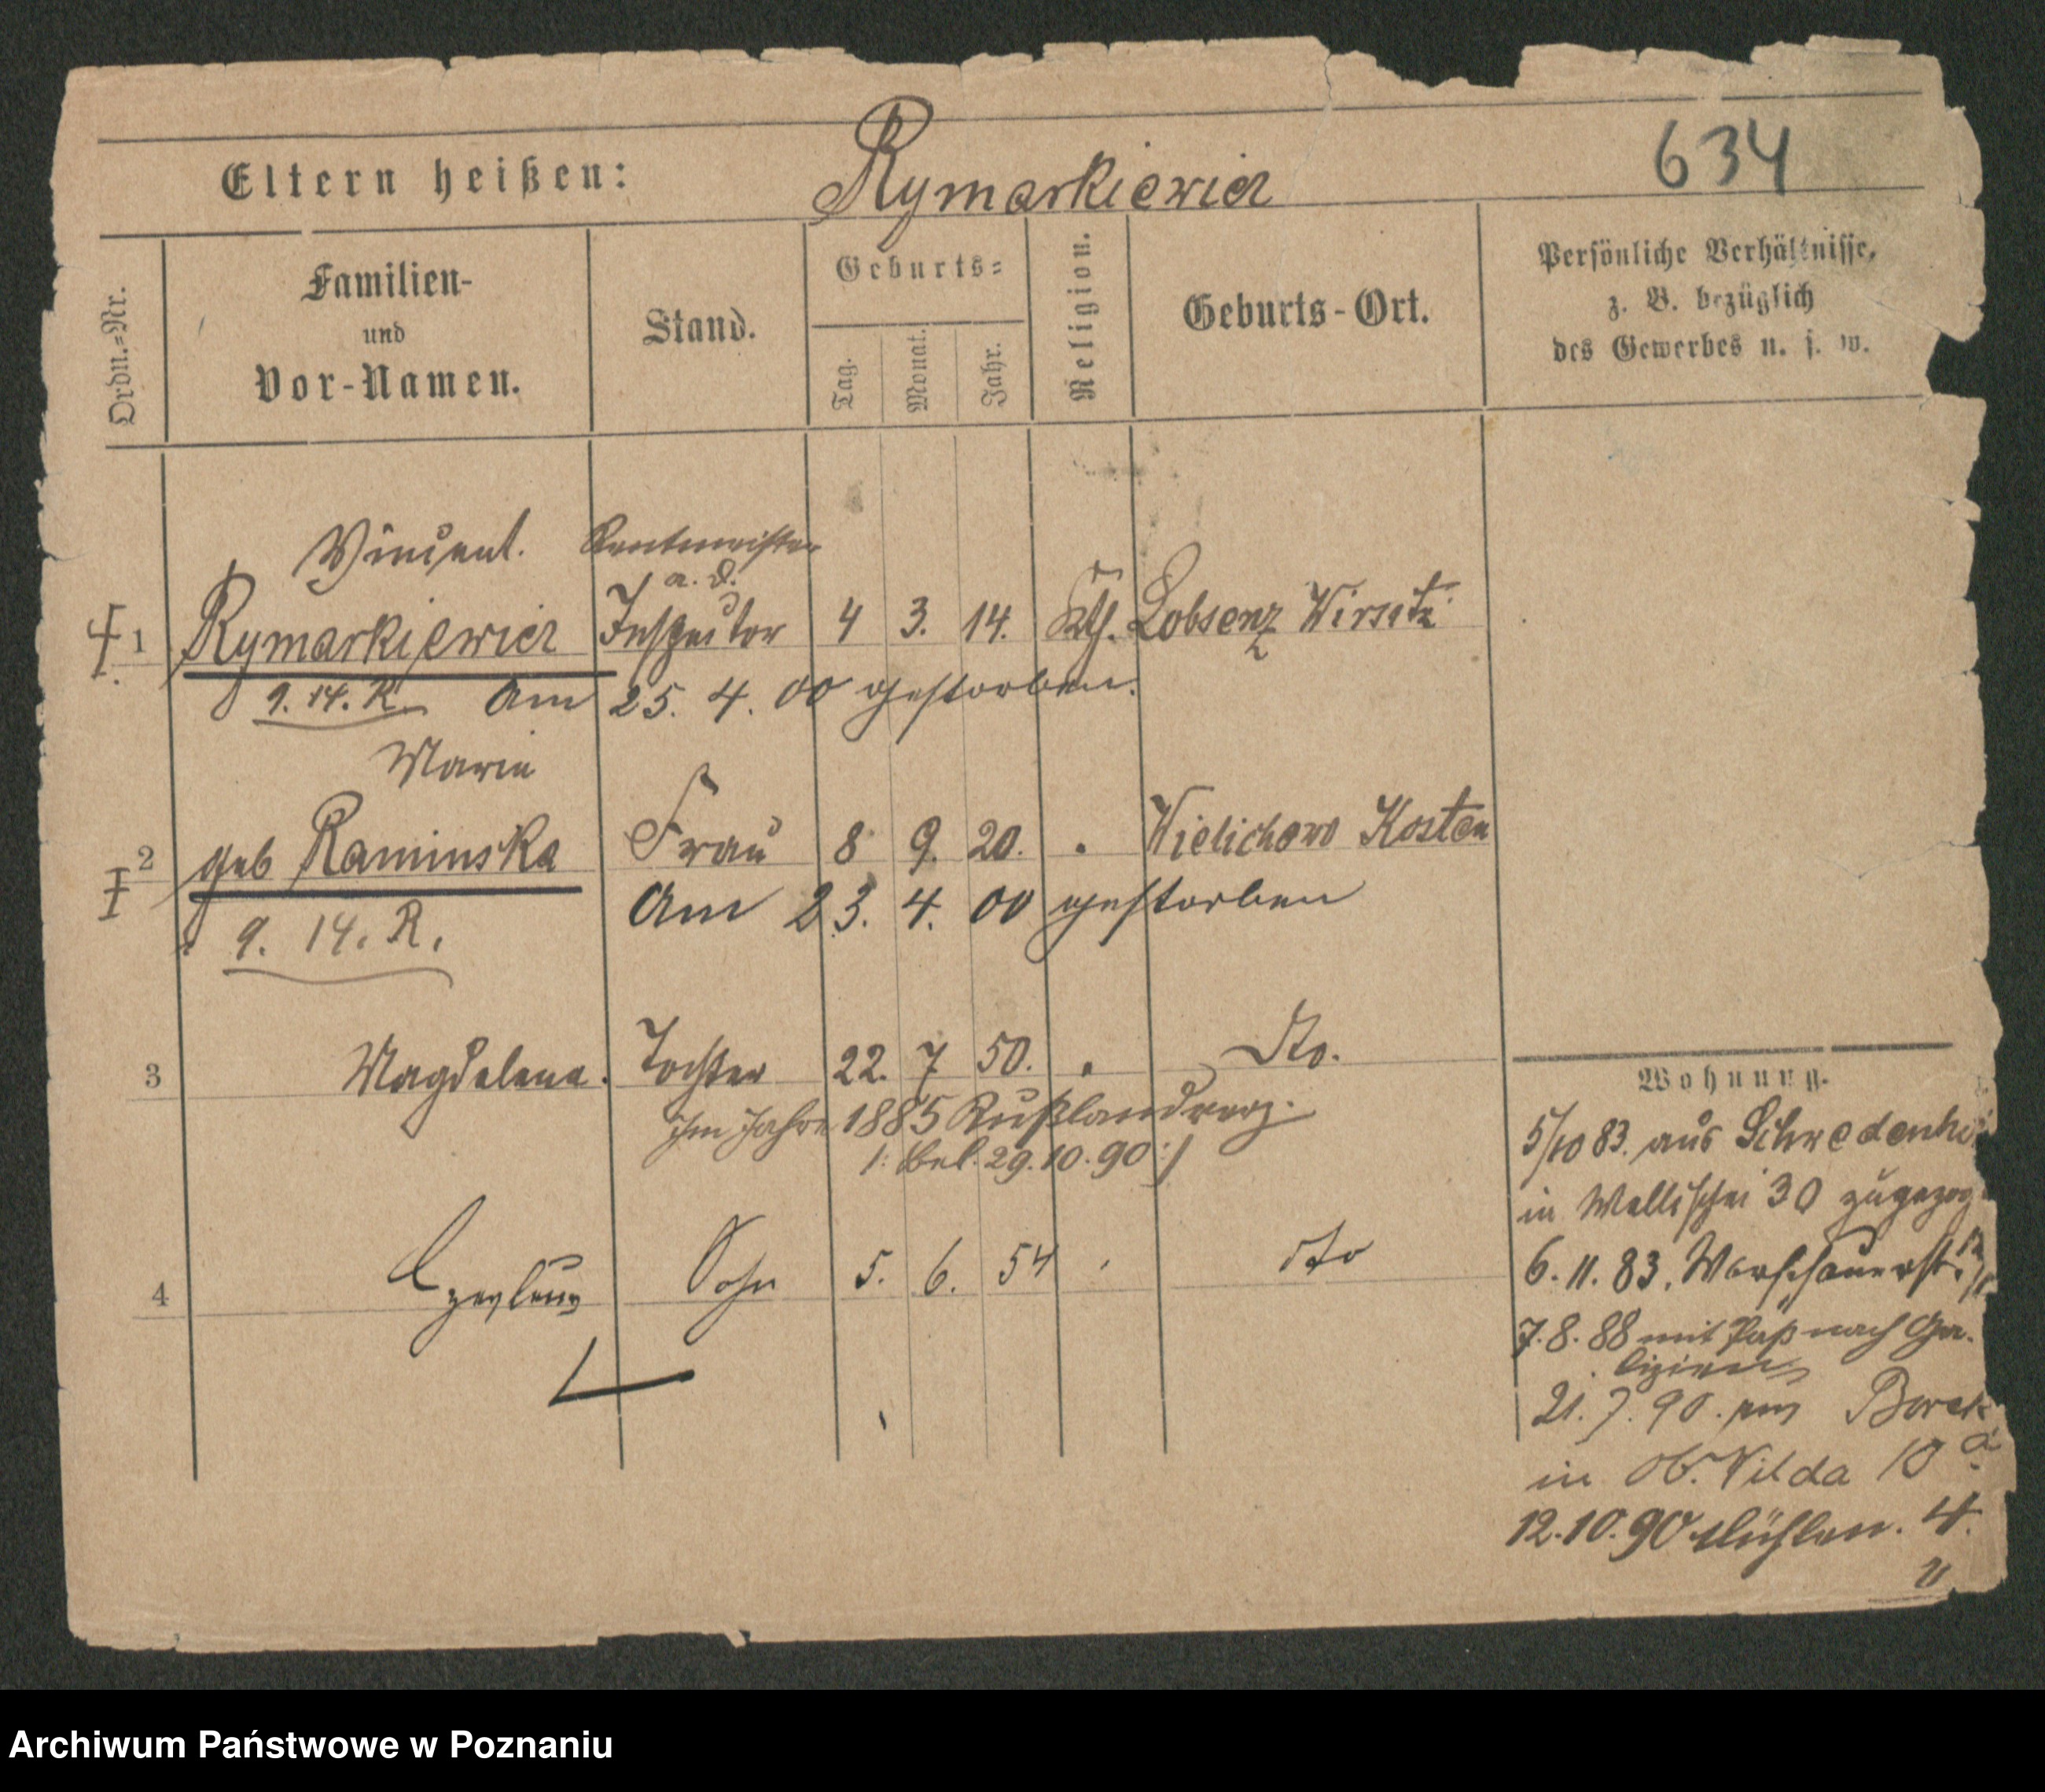 634
Eltern heißen: Rymarkiewicz
Ordn.=Nr.
Familien-
und
Vor-Namen.
Stand.
Geburts=
Tag.
Monat.
Jahr.
Religion.
Geburts-Ort.
Persönliche Verhältnisse,
z. B. bezüglich
des Gewerbes u. s. w.
Vincent. Rentmeister
a. D.
1 Rymarkiewicz Inspector 4 3. 14. Kth. Lobsenz Wirsitz
9. 14. R. Am 25. 4. 00 gestorben.
Marie
2 geb Kaminska Frau 8 9. 20. Wielichowo Kosten
Am 23. 4. 00 gestorben
9. 14. R.
3 Magdalena. Tochter 22. 7 50. dto.
im Jahre 1885 Rußland verz.
/: Bel. 29. 10. 90 :/
4 Sohn 5. 6. 54 dto
Wohnung.
5/10 83. aus
in Wallischei 30 zugezog
6. 11. 83. Warschauerstr.
7. 8. 88 mit Paß nach Ga-
lizien
21. 7. 90. aus Borek
in Ob. Vilda 10 a
12. 10. 90 Mühlen. 4.
Archiwum Państwowe w Poznaniu